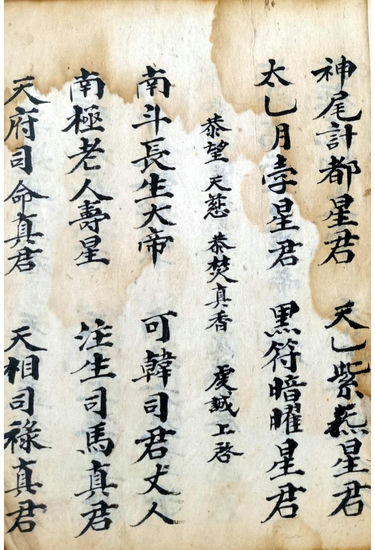 神尾計都星君　天乚紫炁星君
太乚月孛星君　黑符暗曜星君
恭望　天慈　恭焚真香　虔誠上啓
南斗長生大帝　可韓司君丈人
南極老人壽星　注生司馬真君
天府司命真君　天相司祿真君